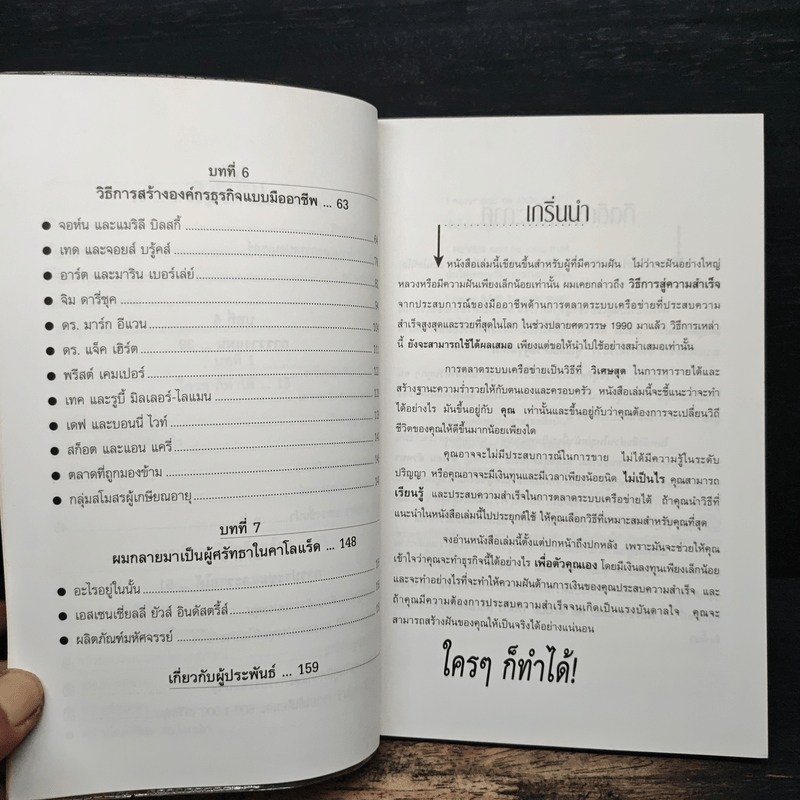 บทที่ 6
วิธีการสร้างองค์กรธุรกิจแบบมืออาชีพ ... 63
จอห์น และแมริลี บิลสกี้
เทด และจอยส์ บรู้คส์
อาร์ต และมาริน เบอร์เล่ย์
จิม ดารี่ชุค
ดร. มาร์ก อีแวน
ดร. แจ็ค เฮิร์ต
พรีสต์ เคมเปอร์
เทค และรูบี้ มิลเลอร์-ไลแมน
เดฟ และบอนนี่ ไวท์
สก็อต และแอน แครี่
ตลาดที่ถูกมองข้าม
กลุ่มสโมสรผู้เกษียณอายุ
บทที่ 7
ผมกลายมาเป็นผู้ศรัทธาในคาโลแร็ด ... 148
อะไรอยู่ในนั้น
เอสเซนเชี่ยลลี่ ยัวส์ อินดัสตรี้ส์
ผลิตภัณฑ์มหัศจรรย์
เกี่ยวกับผู้ประพันธ์ ... 159
เกริ่นนำ
หนังสือเล่มนี้เขียนขึ้นสำหรับผู้ที่มีความฝัน ไม่ว่าจะฝันอย่างใหญ่
หลวงหรือมีความฝันเพียงเล็กน้อยเท่านั้น ผมเคยกล่าวถึง วิธีการสู่ความสำเร็จ
จากประสบการณ์ของมืออาชีพด้านการตลาดระบบเครือข่ายที่ประสบความ
สำเร็จสูงสุดและรวยที่สุดในโลก ในช่วงปลายศตวรรษ 1990 มาแล้ว วิธีการเหล่า
นี้ ยังจะสามารถใช้ได้ผลเสมอ เพียงแต่ขอให้นำไปใช้อย่างสม่ำเสมอเท่านั้น
การตลาดระบบเครือข่ายเป็นวิธีที่ วิเศษสุด ในการหารายได้และ
สร้างฐานะความร่ำรวยให้กับตนเองและครอบครัว หนังสือเล่มนี้จะชี้แนะว่าจะทำ
ได้อย่างไร มันขึ้นอยู่กับ คุณ เท่านั้นและขึ้นอยู่กับว่าคุณต้องการจะเปลี่ยนวิถี
ชีวิตของคุณให้ดีขึ้นมากน้อยเพียงใด
คุณอาจจะไม่มีประสบการณ์ในการขาย ไม่ได้มีความรู้ในระดับ
ปริญญา หรือคุณอาจจะมีเงินทุนและมีเวลาเพียงน้อยนิด ไม่เป็นไร คุณสามารถ
เรียนรู้ และประสบความสำเร็จในการตลาดระบบเครือข่ายได้ ถ้าคุณนำวิธีที่
แนะนำในหนังสือเล่มนี้ไปประยุกต์ใช้ ให้คุณเลือกวิธีที่เหมาะสมสำหรับคุณที่สุด
จงอ่านหนังสือเล่มนี้ตั้งแต่ปกหน้าถึงปกหลัง เพราะมันจะช่วยให้คุณ
เข้าใจว่าคุณจะทำธุรกิจนี้ได้อย่างไร เพื่อตัวคุณเอง โดยมีเงินลงทุนเพียงเล็กน้อย
และจะทำอย่างไรที่จะทำให้ความฝันด้านการเงินของคุณประสบความสำเร็จ และ
ถ้าคุณมีความต้องการประสบความสำเร็จจนเกิดเป็นแรงบันดาลใจ คุณจะ
สามารถสร้างฝันของคุณให้เป็นจริงได้อย่างแน่นอน
ใครๆ ก็ทำได้!